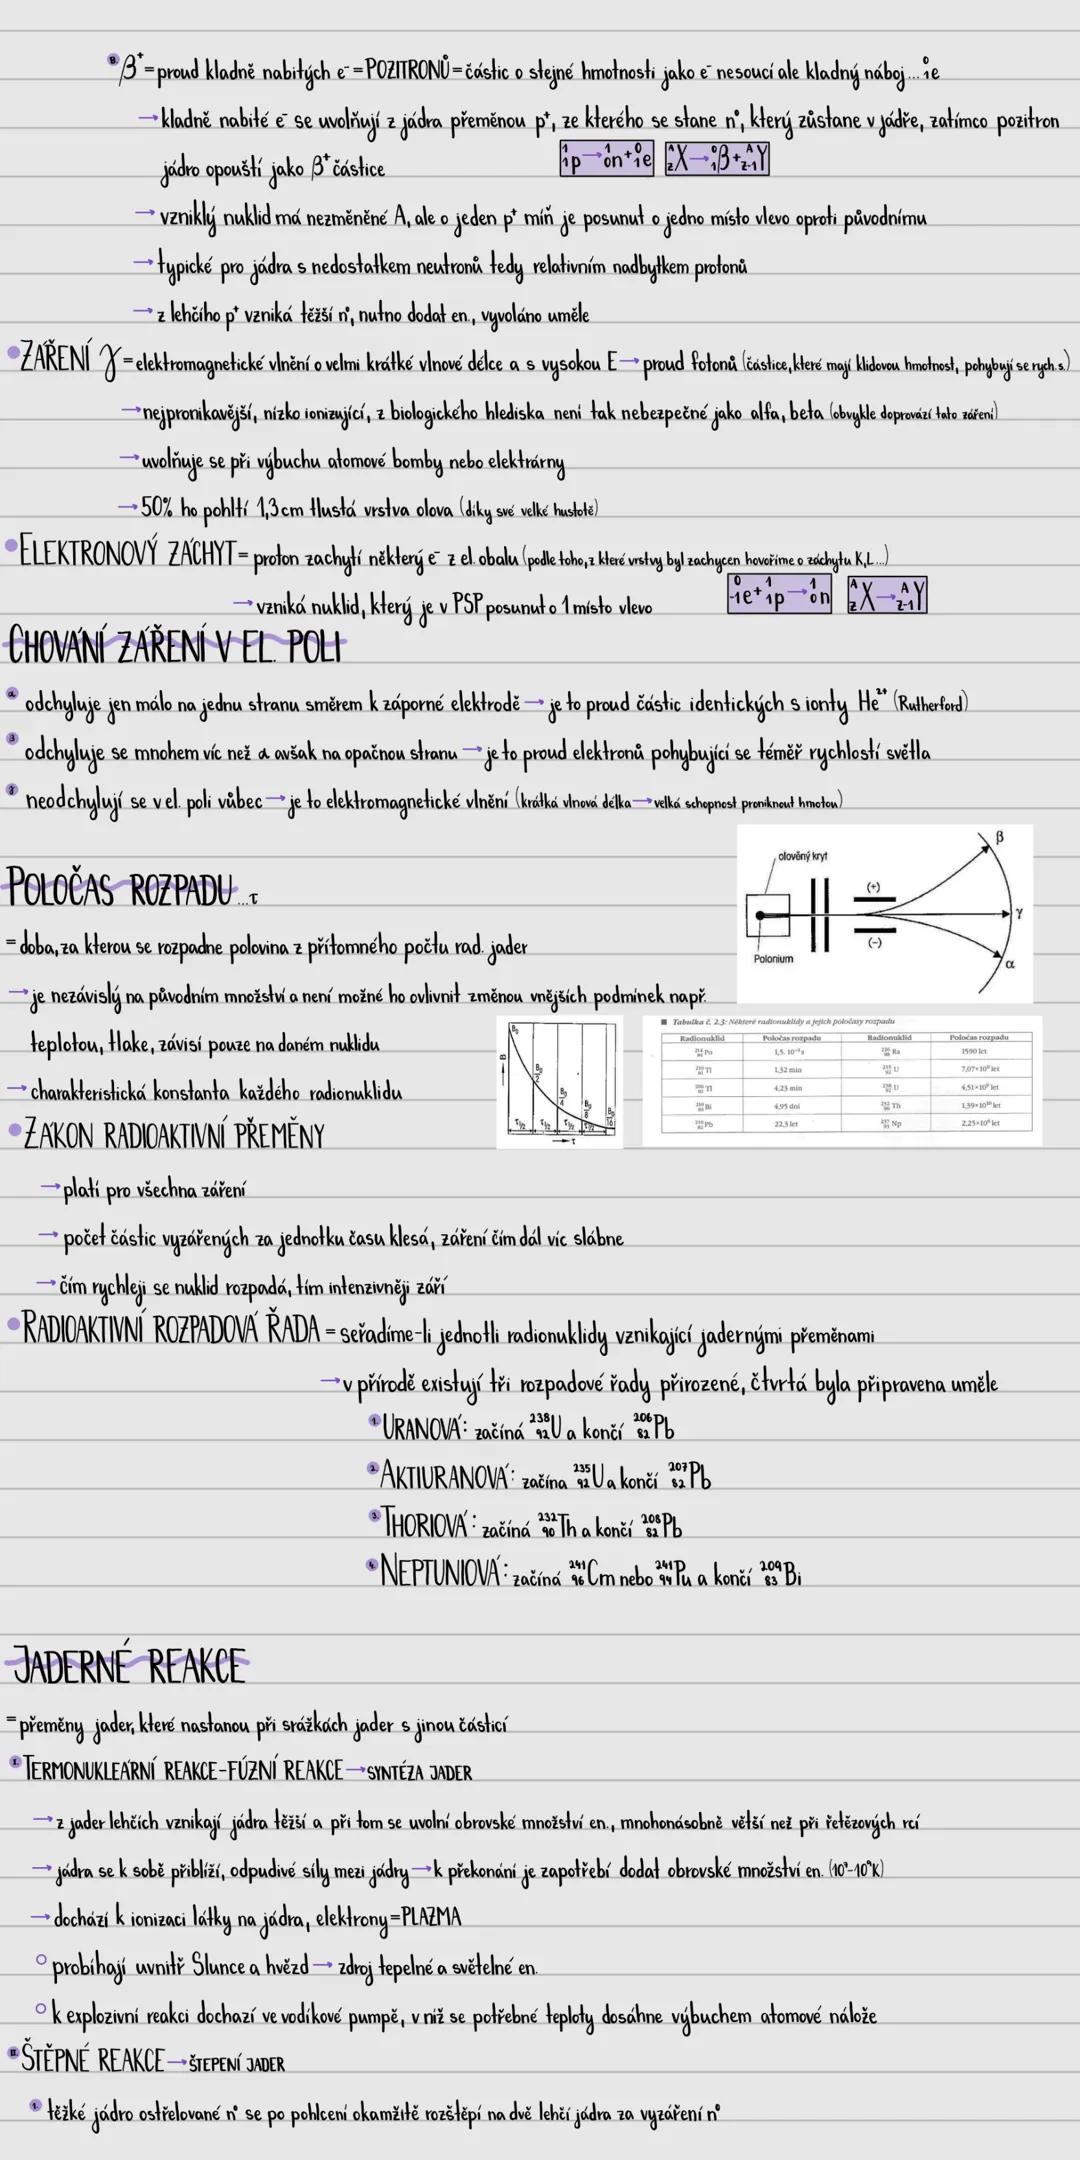 B. β⁺=proud kladně nabitých e⁻=POZITRONŮ=částic o stejné hmotnosti jako e⁻ nesoucí ale kladný náboj...⁰₁e
→kladně nabité e⁻ se uvolňují z jádra přeměnou p⁺, ze kterého se stane n⁰, který zůstane v jádře, zatímco pozitron
jádro opouští jako β⁺částice ¹₁p→¹₀n+⁰₁e ᴬzX→⁰₁β+ᴬz-1Y
→vzniklý nuklid má nezměněné A, ale o jeden p⁺ míň je posunut o jedno místo vlevo oproti původnímu
→typické pro jádra s nedostatkem neutronů tedy relativním nadbytkem protonů
→z lehčího p⁺ vzniká těžší n⁰, nutno dodat en., vyvoláno uměle
•ZÁŘENÍ γ=elektromagnetické vlnění o velmi krátké vlnové délce a s vysokou E→proud fotonů (částice, které mají klidovou hmotnost, pohybují se rych.s.)
→nejpronikavější, nízko ionizující, z biologického hlediska není tak nebezpečné jako alfa, beta (obvykle doprovází tato záření)
→uvolňuje se při výbuchu atomové bomby nebo elektrárny
→50% ho pohltí 1,3cm tlustá vrstva olova (díky své velké hustotě)
•ELEKTRONOVÝ ZÁCHYT=proton zachytí některý e⁻ z el. obalu (podle toho, z které vrstvy byl zachycen hovoříme o záchytu K,L...)
→vzniká nuklid, který je v PSP posunut o 1 místo vlevo ⁰₋₁e+¹₁p→¹₀n ᴬzX→ᴬz-1Y
CHOVÁNÍ ZÁŘENÍ V EL. POLI
α odchyluje jen málo na jednu stranu směrem k záporné elektrodě→je to proud částic identických s ionty He²⁺ (Rutherford)
β odchyluje se mnohem víc než α avšak na opačnou stranu→je to proud elektronů pohybující se téměř rychlostí světla
γ neodchylují se v el. poli vůbec→je to elektromagnetické vlnění (krátká vlnová délka→velká schopnost proniknout hmotou)
olověný kryt
β
(+)
γ
(-)
α
Polonium
POLOČAS ROZPADU...τ
=doba, za kterou se rozpadne polovina z přítomného počtu rad. jader
→je nezávislý na původním množství a není možné ho ovlivnit změnou vnějších podmínek např.
teplotou, tlake, závisí pouze na daném nuklidu
→charakteristická konstanta každého radionuklidu
B₀
B
B₀/2
B₀/4
B₀/8
B₀/16
τ1/2 τ1/2 τ1/2 τ1/2
→τ
■ Tabulka č. 2.3: Některé radionuklidy a jejich poločasy rozpadu
Radionuklid Poločas rozpadu Radionuklid Poločas rozpadu
Po 1,5. 10⁻⁴s Ra 1590 let
Tl 1,32 min U 7,07×10⁸ let
Tl 4,23 min U 4,51×10⁹ let
Bi 4,95 dní Th 1,39×10¹⁰ let
Pb 22,3 let Np 2,25×10⁶ let
•ZÁKON RADIOAKTIVNÍ PŘEMĚNY
→platí pro všechna záření
→počet částic vyzářených za jednotku času klesá, záření čím dál víc slábne
→čím rychleji se nuklid rozpadá, tím intenzivněji září
•RADIOAKTIVNÍ ROZPADOVÁ ŘADA=seřadíme-li jednotli radionuklidy vznikající jadernými přeměnami
→v přírodě existují tři rozpadové řady přirozené, čtvrtá byla připravena uměle
1. URANOVÁ: začíná ²³⁸₉₂U a končí ²⁰⁶₈₂Pb
2. AKTIURANOVÁ: začína ²³⁵₉₂U a končí ²⁰⁷₈₂Pb
3. THORIOVÁ: začíná ²³²₉₀Th a končí ²⁰⁸₈₂Pb
4. NEPTUNIOVÁ: začíná ²⁴¹₉₆Cm nebo ²⁴¹₉₄Pu a končí ²⁰⁹₈₃Bi
JADERNÉ REAKCE
=přeměny jader, které nastanou při srážkách jader s jinou částicí
I. TERMONUKLEÁRNÍ REAKCE-FÚZNÍ REAKCE→SYNTÉZA JADER
→z jader lehčích vznikají jádra těžší a při tom se uvolní obrovské množství en., mnohonásobně větší než při řetězových rcí
→jádra se k sobě přiblíží, odpudivé síly mezi jádry→k překonání je zapotřebí dodat obrovské množství en.
→dochází k ionizaci látky na jádra, elektrony=PLAZMA
○probíhají uvnitř Slunce a hvězd→zdroj tepelné a světelné en.
○k explozivní reakci dochází ve vodíkové pumpě, v níž se potřebné teploty dosáhne výbuchem atomové nálože
II. ŠTĚPNÉ REAKCE→ŠTEPENÍ JADER
1. těžké jádro ostřelované n⁰ se po pohlcení okamžitě rozštěpí na dvě lehčí jádra za vyzáření n⁰